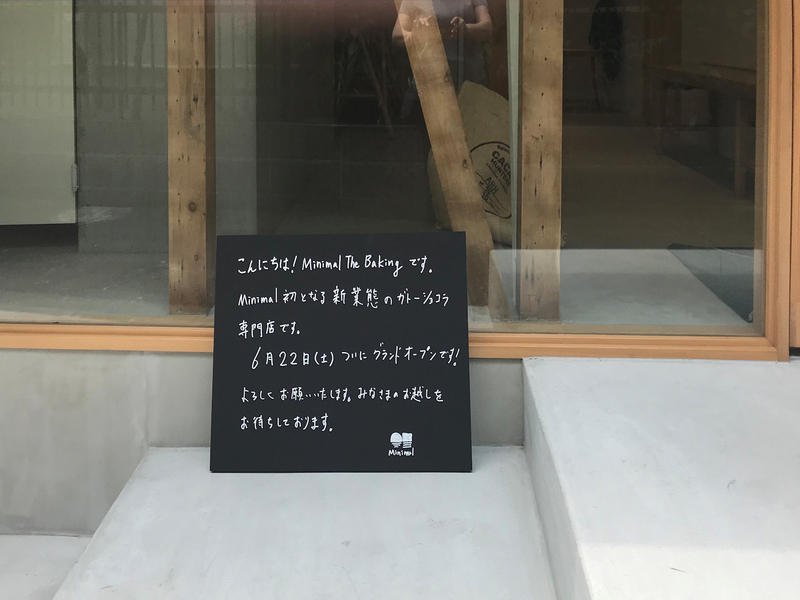 こんにちは! Minimal The Baking です。
Minimal 初となる新業態のガトーショコラ
専門店です。
6月22日(土) ついにグランドオープンです!
よろしくお願いいたします。みなさまのお越しを
お待ちしております。
Minimal